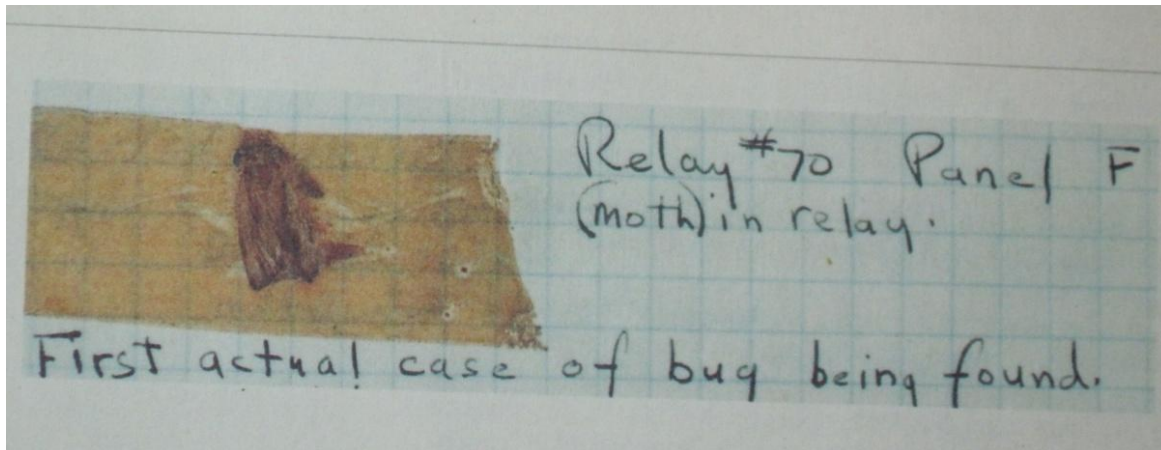 Relay #70 Panel F
(moth) in relay.
First actual case of bug being found.